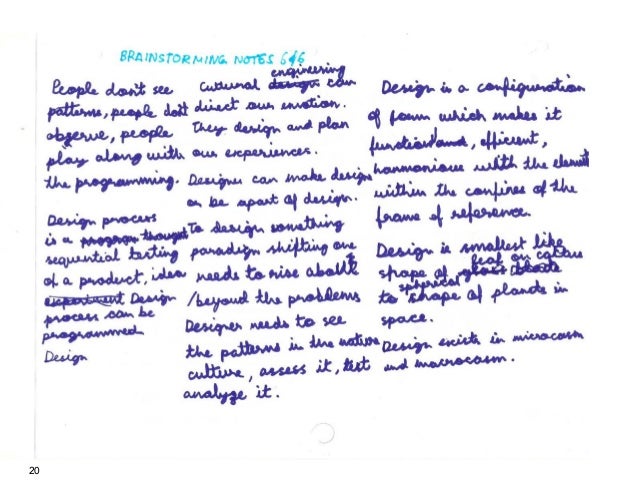 BRAINSTORMING NOTES 6/6
People don't see
patterns, people don't
observe, people
play along with
the programming.
Design process
is a program thought
sequential testing
of a product, idea
experiment Design
process can be
programmed
Design
engineering
Cultural design can
direct our emotion.
They design and plan
our experiences.
Designer can make design
or be apart of design.
To design something
paradigm shifting one
needs to rise above it
/beyond the problems
Designer needs to see
the patterns in the nature
culture, assess it, test
analyze it.
Design is a configuration
of form which makes it
functional and, efficient,
harmonious with the element
within the confines of the
frame of reference.
Design is smallest like
leaf on cactus
shape of grass blade
spherical
to shape of planets in
space.
Design exists in microcosm
and macrocosm.
20